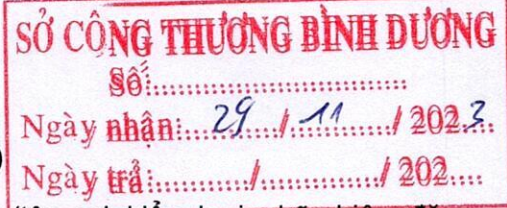 SỞ CÔNG THƯƠNG BÌNH DƯƠNG
Số:..................................
Ngày nhận:....29..../...11......../ 2023..
Ngày trả:............/................/ 202....